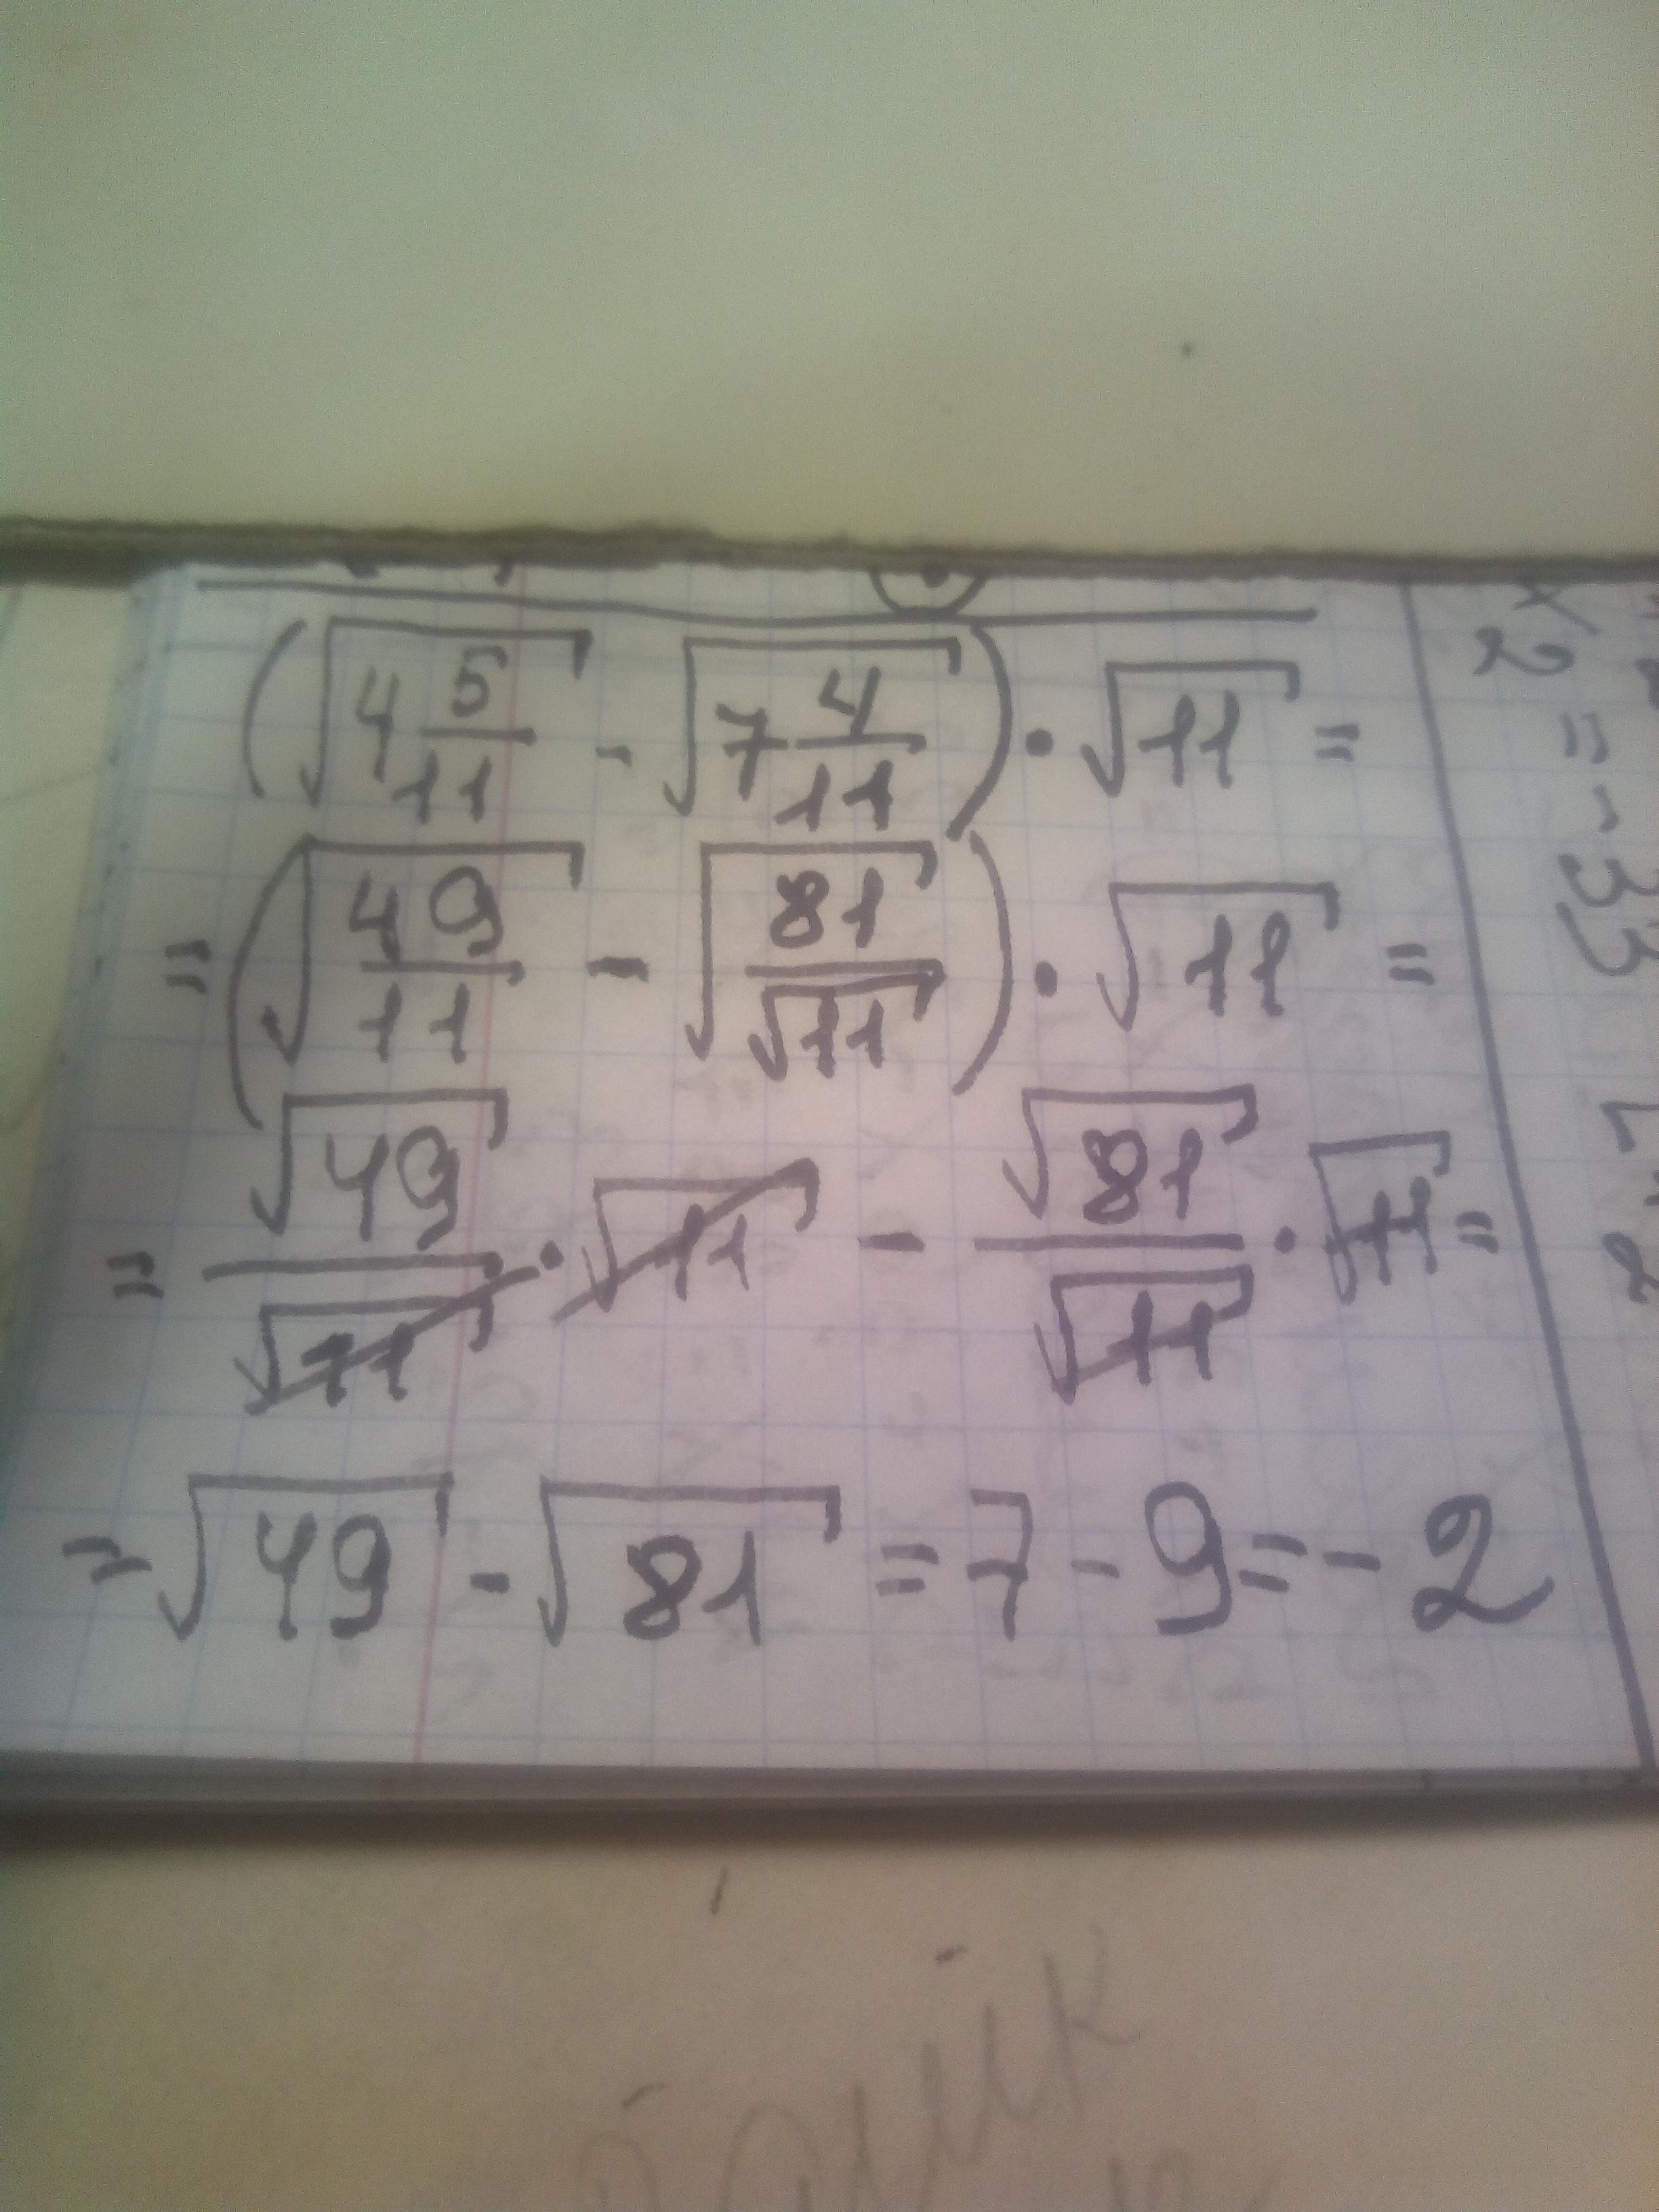 (√4 5/11 - √7 4/11) · √11 =
= (√49/11 - √81/√11) · √11 =
= √49/√11 · √11 - √81/√11 · √11 =
= √49 - √81 = 7 - 9 = - 2
x2 = - 33